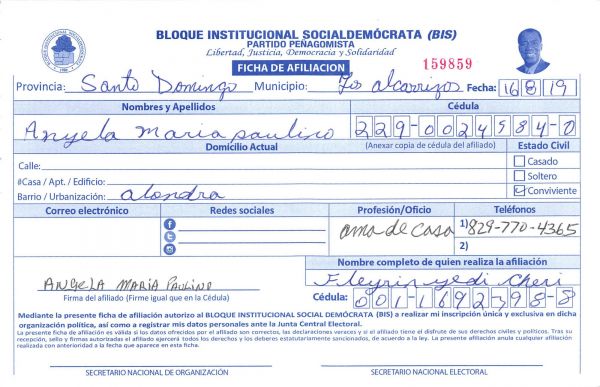 BLOQUE INSTITUCIONAL SOCIALDEMÓCRATA (BIS)
PARTIDO PEÑAGOMISTA
Libertad, Justicia, Democracia y Solidaridad
FICHA DE AFILIACION
159859
Provincia: Santo Domingo Municipio: Los alcarrizos Fecha: 16 8 19
Nombres y Apellidos Cédula
Angela Maria paulino 229-0024584-0
Domicilio Actual (Anexar copia de cédula del afiliado) Estado Civil
Calle: Casado
#Casa / Apt. / Edificio: Soltero
Barrio / Urbanización: alondra Conviviente
Correo electrónico Redes sociales Profesión/Oficio Teléfonos
ama de casa 1) 829-770-4365
2)
Nombre completo de quien realiza la afiliación
ANGELA MARIA PAULINO
Firma del afiliado (Firme igual que en la Cédula)
Cédula: 001-1692398-8
Mediante la presente ficha de afiliación autorizo al BLOQUE INSTITUCIONAL SOCIAL DEMÓCRATA (BIS) a realizar mi inscripción única y exclusiva en dicha
organización política, así como a registrar mis datos personales ante la Junta Central Electoral.
La presente ficha de afiliación es válida si los datos ofrecidos por el afiliado son correctos, las declaraciones veraces y si el afiliado tiene el disfrute de sus derechos civiles y políticos. Tras su
recepción, sello y firmas autorizadas el afiliado ejercerá todos los derechos y los deberes estatutariamente sancionados, de acuerdo a la ley. La presente afiliación anula cualquier afiliación
realizada con anterioridad a la fecha que aparece en esta ficha.
SECRETARIO NACIONAL DE ORGANIZACIÓN SECRETARIO NACIONAL ELECTORAL